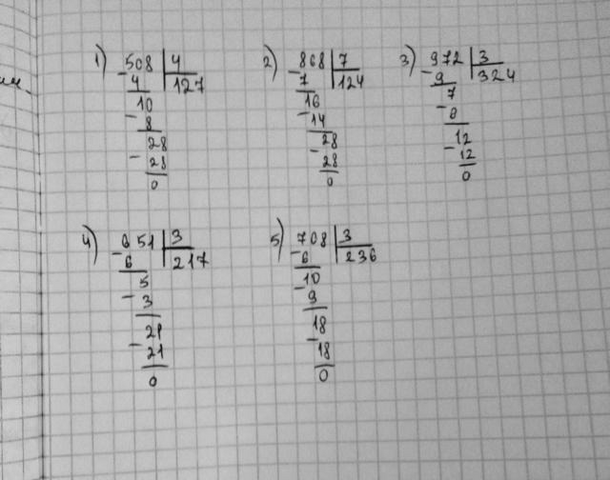 1) 508 4
- 4 127
10
- 8
28
- 28
0
2) 868 7
- 7 124
16
- 14
28
- 28
0
3) 972 3
- 9 324
7
- 6
12
- 12
0
4) 651 3
- 6 217
5
- 3
21
- 21
0
5) 708 3
- 6 236
10
- 9
18
- 18
0